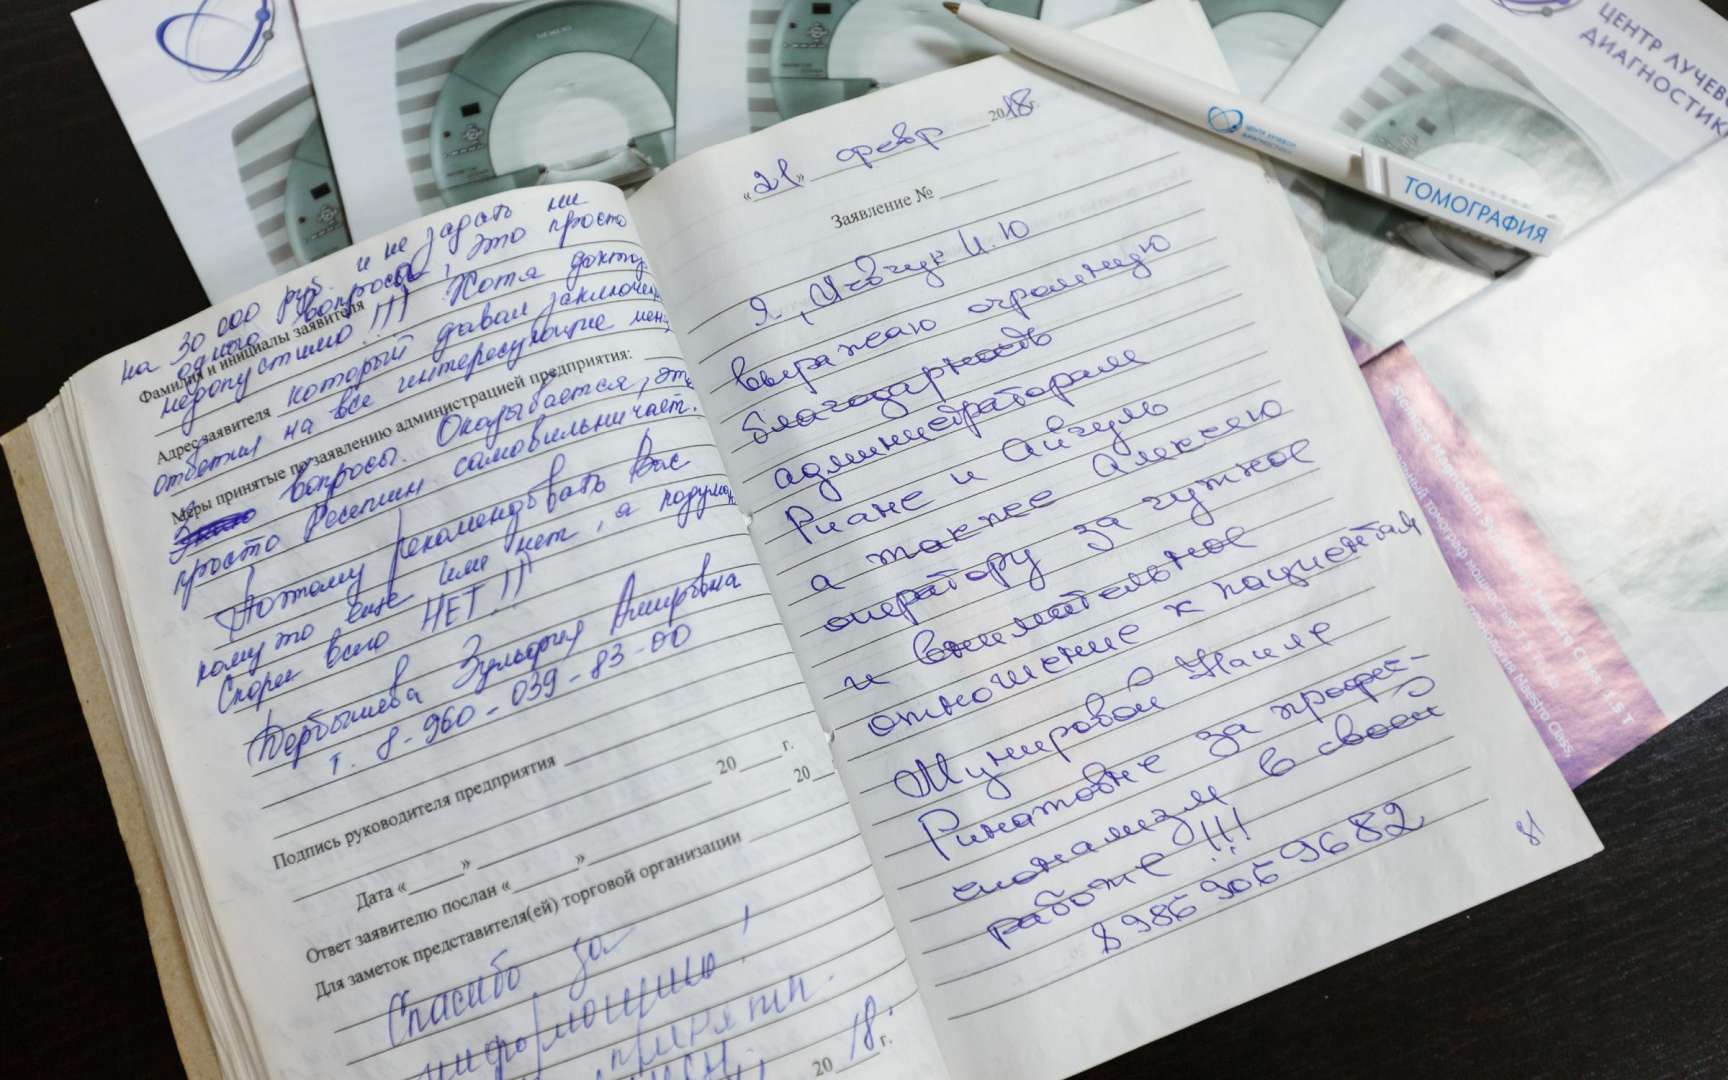 на 30 000 руб. и не задать ни
одного вопроса, это просто
Фамилия и инициалы заявителя
недопустимо!!! Хотя доктор
Адрес заявителя
который давал заключение
ответил на все интересующие меня
Меры принятые по заявлению администрацией предприятия:
вопросы. Оказывается, это
просто Ресепшн самовольничает.
Поэтому рекомендовать Вас
кому то еще или нет, я подумаю
Скорее всего НЕТ!!!
Дербышева Зульфия Амировна
т. 8-960-039-83-00
Подпись руководителя предприятия
20 г.
Дата « »
20
Ответ заявителю послан « »
Для заметок представителя(ей) торговой организации
Спасибо за
информацию!
20 18 г.
«21» февр 2018г.
Заявление №
Я, И.Ю
выражаю огромную
благодарность
администраторам
Риане и Айгуль
а также Алексею
оператору за чуткое
и внимательное
отношение к пациентам
Мунировой Наиле
Ринатовне за профес-
сионализм в своей
работе!!!
89869059682
81
ЦЕНТР ЛУЧЕВОЙ
ДИАГНОСТИКИ
ТОМОГРАФИЯ
ЦЕНТР ЛУЧЕВОЙ
ДИАГНОСТИКИ
SIEMENS